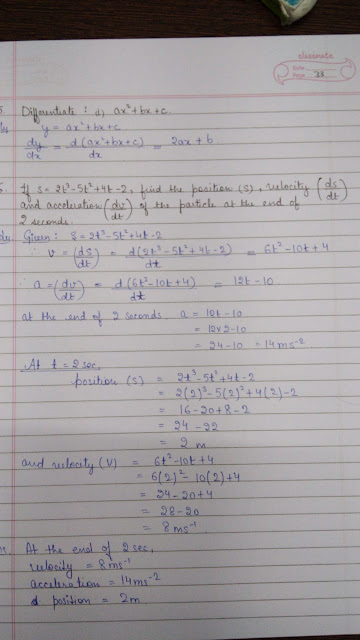 classmate
Date
Page 38
5. Differentiate : d) ax²+bx+c.
y = ax²+bx+c
dy/dx = d(ax²+bx+c)/dx = 2ax + b
If s = 2t³-5t²+4t-2, find the position (s), velocity (ds/dt)
and acceleration (dv/dt) of the particle at the end of
2 seconds.
Given: S = 2t³-5t²+4t-2
∴ V = (ds/dt) = d(2t³-5t²+4t-2)/dt = 6t²-10t+4
∴ a = (dv/dt) = d(6t²-10t+4)/dt = 12t-10
at the end of 2 seconds a = 12t-10
= 12x2-10
= 24-10 = 14ms⁻²
At t = 2 sec,
position (S) = 2t³-5t²+4t-2
= 2(2)³-5(2)²+4(2)-2
= 16-20+8-2
= 24-22
= 2 m
and velocity (V) = 6t²-10t+4
= 6(2)²-10(2)+4
= 24-20+4
= 28-20
= 8ms⁻¹
At the end of 2 sec,
velocity = 8ms⁻¹
acceleration = 14ms⁻²
position = 2m